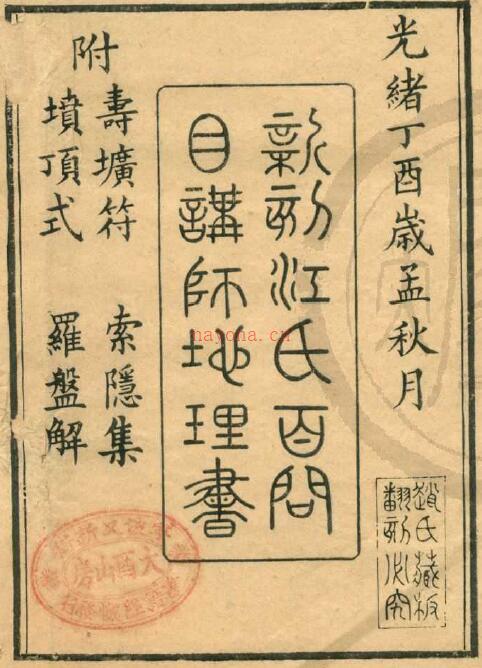 光緒丁酉歲孟秋月
新刻江氏百問
目講師地理書
附
壽壙符 索隱集
墳頂式 羅盤解
趙氏藏板
翻刻必究
nayona.cn